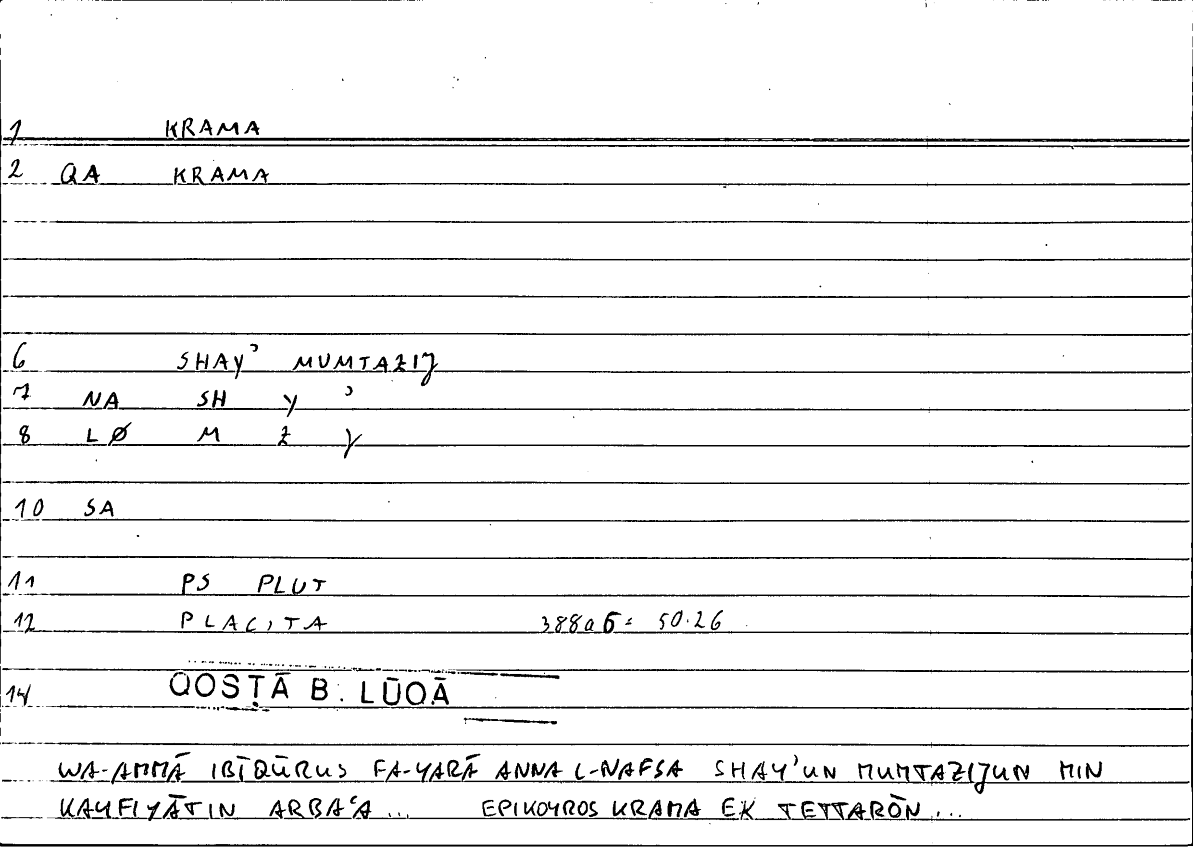 1 KRAMA
2 QA KRAMA
6 SHAYʾ MUMTAZIJ
7 NA SH Y ʾ
8 LØ M Z J
10 SA
11 PS PLUT
12 PLACITA 388a6= 50.26
14 QOSṬĀ B. LŪQĀ
WA-AMMĀ IBĪQŪRUS FA-YARĀ ANNA L-NAFSA SHAY'UN MUMTAZIJUN MIN
KAYFIYĀTIN ARBAʿA ... EPIKOYROS KRAMA EK TETTARŌN ...